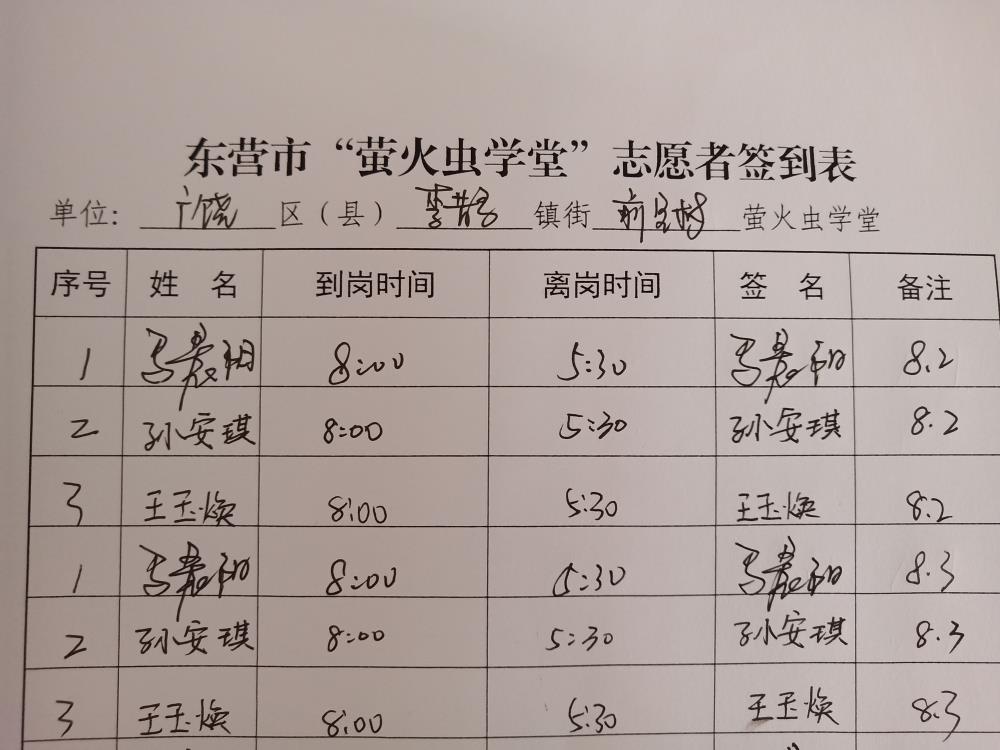 东营市“萤火虫学堂”志愿者签到表
单位: 广饶 区（县） 李鹊 镇街 村 萤火虫学堂
序号 姓 名 到岗时间 离岗时间 签 名 备注
1 马晨阳 8:00 5:30 马晨阳 8.2
2 孙安琪 8:00 5:30 孙安琪 8.2
3 王玉焕 8:00 5:30 王玉焕 8.2
1 马晨阳 8:00 5:30 马晨阳 8.3
2 孙安琪 8:00 5:30 孙安琪 8.3
3 王玉焕 8:00 5:30 王玉焕 8.3